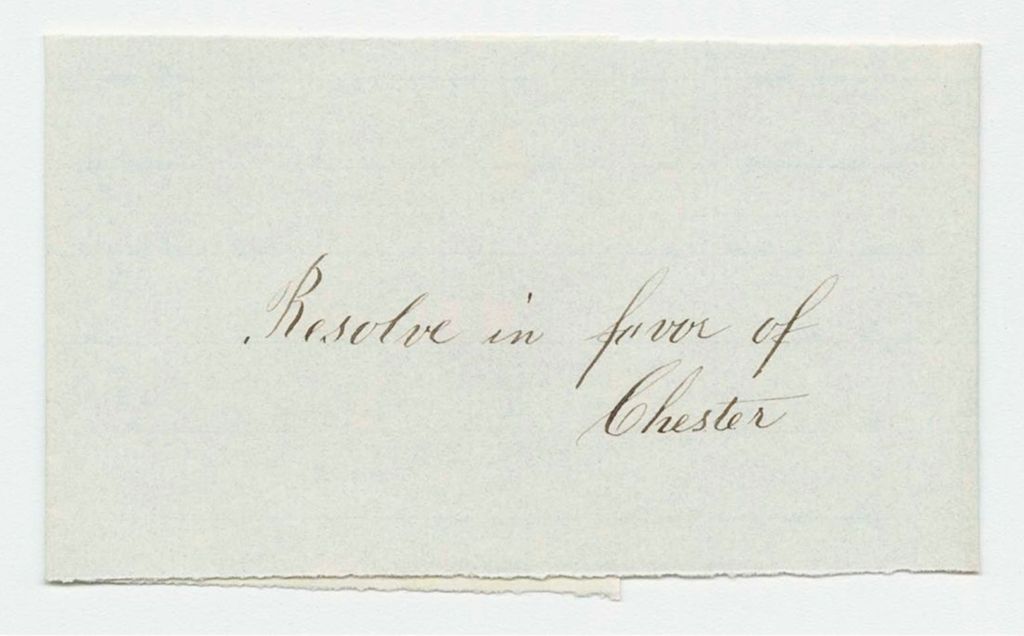 Resolve in favor of
Chester